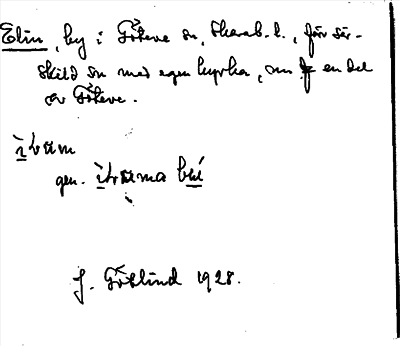 Elin, by i Göteve sn, Skarab. l., förr sär-
skild sn med egen kyrka, nu en del
av Göteve.
gen.
J. Götlind 1928.